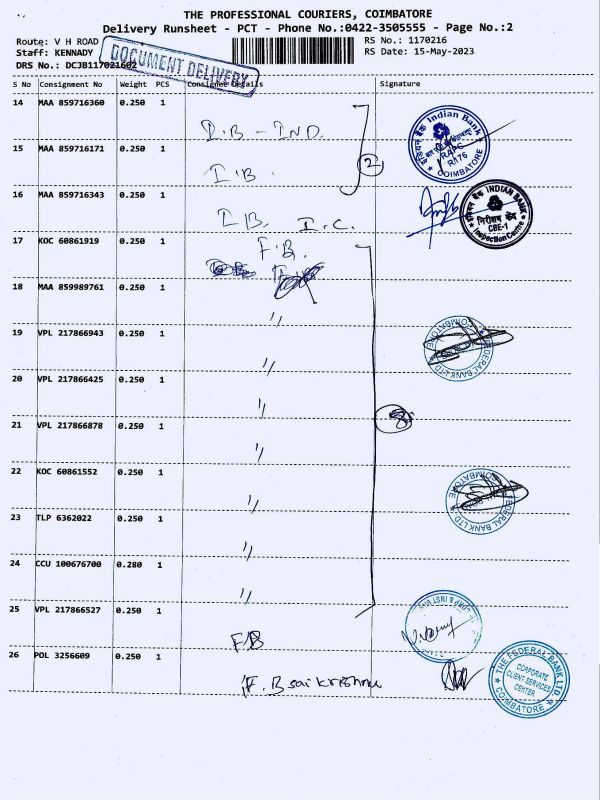 THE PROFESSIONAL COURIERS, COIMBATORE
Delivery Runsheet - PCT - Phone No.:0422-3505555 - Page No.:2
Route: V H ROAD
Staff: KENNADY
DRS No.: DCJB117021602
RS No.: 1170216
RS Date: 15-May-2023
DOCUMENT DELIVERY
S No Consignment No Weight PCS Consignee Details Signature
14 MAA 859716360 0.250 1
I.B - IND.
Indian Bank
COIMBATORE
15 MAA 859716171 0.250 1
I.B.
2
16 MAA 859716343 0.250 1
I.B. I.C.
INDIAN BANK
निरीक्षण केंद्र
CBE-1
Inspection Centre
17 KOC 60861919 0.250 1
F.B.
18 MAA 859989761 0.250 1
"
19 VPL 217866943 0.250 1
"
FEDERAL BANK LTD
COIMBATORE
20 VPL 217866425 0.250 1
"
21 VPL 217866878 0.250 1
"
22 KOC 60861552 0.250 1
"
FEDERAL BANK LTD
COIMBATORE
23 TLP 6362022 0.250 1
"
24 CCU 100676700 0.280 1
"
25 VPL 217866527 0.250 1
F.B
26 POL 3256609 0.250 1
F.B sai krishna
THE FEDERAL BANK LTD.
CORPORATE
CLIENT SERVICES
CENTER
COIMBATORE